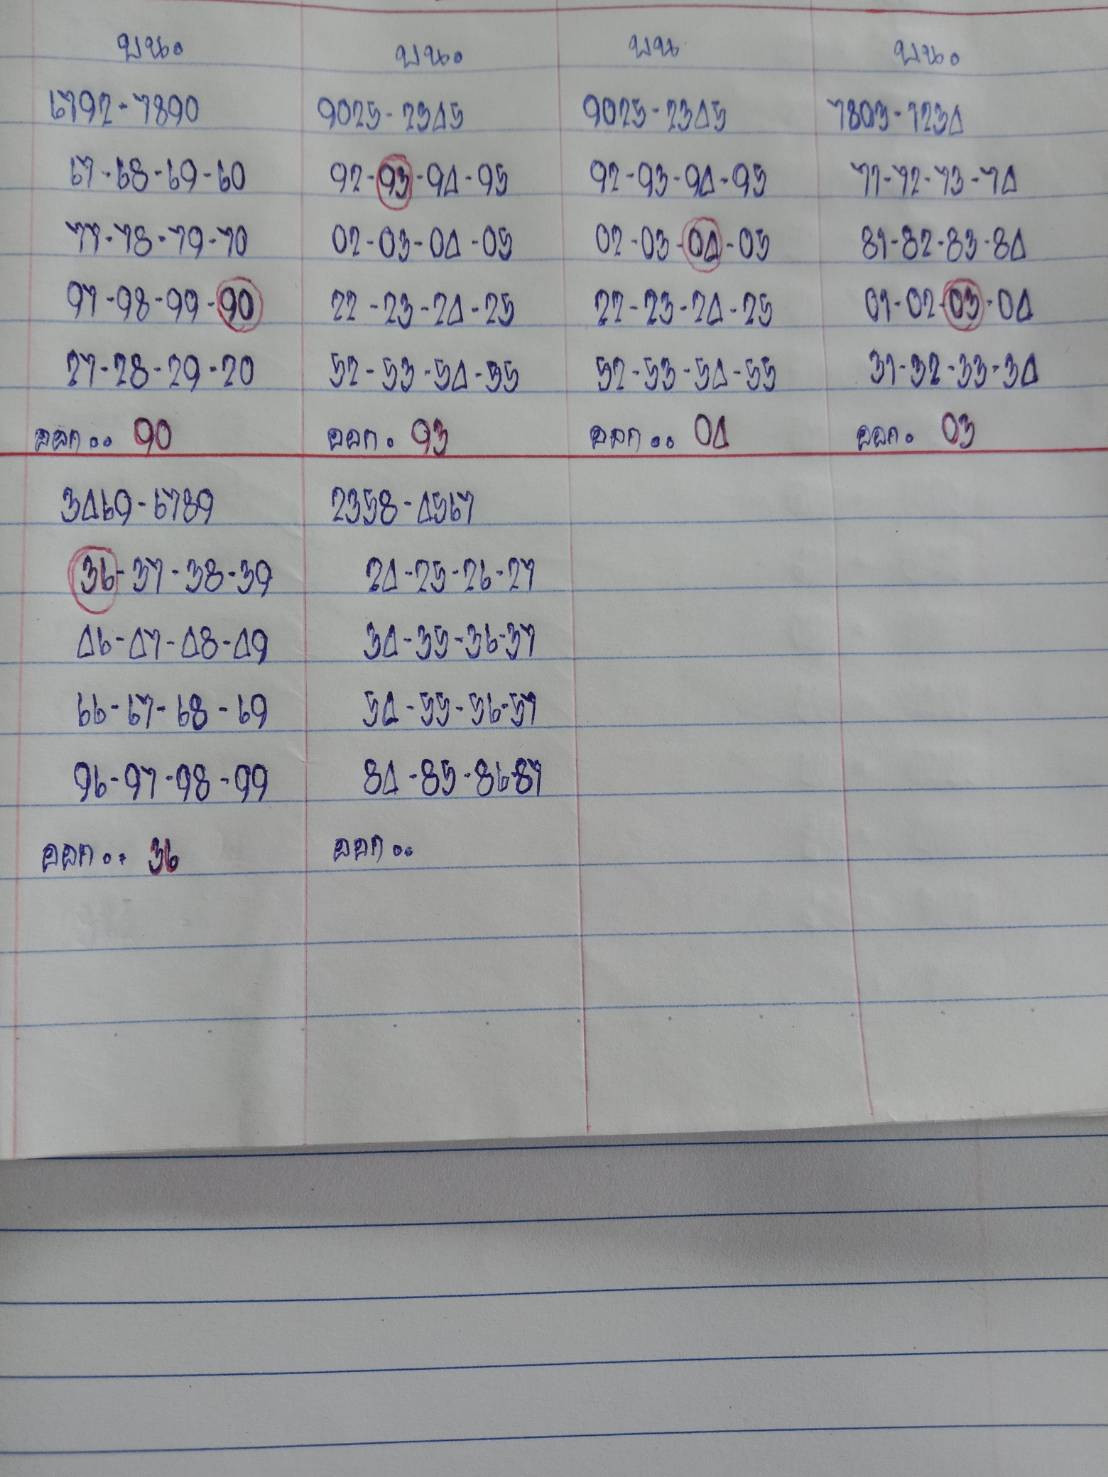 บน.
6792-7890
67-68-69-60
77-78-79-70
97-98-99-90
27-28-29-20
ออก.. 90
บน.
9025-2345
92-93-94-95
02-03-04-05
22-23-24-25
52-53-54-55
ออก. 93
บน
9025-2345
92-93-94-95
02-03-04-05
22-23-24-25
52-53-54-55
ออก.. 04
บน.
7803-1234
71-72-73-74
81-82-83-84
01-02-03-04
31-32-33-34
ออก. 03
3469-6789
36-37-38-39
46-47-48-49
66-67-68-69
96-97-98-99
ออก.. 36
2358-4567
24-25-26-27
34-35-36-37
54-55-56-57
84-85-86-87
ออก..